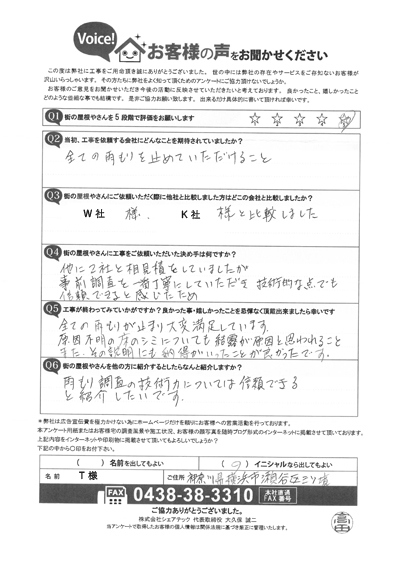 Voice!
お客様の声をお聞かせください
この度は弊社に工事をご用命頂き誠にありがとうございました。世の中には弊社の存在やサービスをご存知ないお客様が
沢山いらっしゃいます。その方たちに弊社をよく知って頂くためのアンケートにご協力頂けないでしょうか。
お客様のご意見をお聞かせいただき今後の活動に反映させていただきたいと考えております。良かったこと、嬉しかったこと
どのような些細な事でも結構です。是非ご協力お願い致します。出来るだけ具体的に書いて頂ければ幸いです。
Q1 街の屋根やさんを5段階で評価をお願いします ☆ ☆ ☆ ☆ ☆
Q2 当初、工事を依頼する会社にどんなことを期待されていましたか?
全ての雨もりを止めていただけること
Q3 街の屋根やさんにご依頼いただく際に他社と比較しました方はどこの会社と比較しましたか?
W社 様、 K社 様と比較しました
Q4 街の屋根やさんに工事をご依頼いただいた決め手は何ですか?
他に2社と相見積をしていましたが
事前調査を一番丁寧にしていただき 技術的な点でも
信頼できると感じたため
Q5 工事が終わってみていかがですか?良かった事・嬉しかったことを忌憚なく頂戴出来ましたら幸いです
全ての雨もりが止まり大変満足しています。
原因不明の床のシミについても結露が原因と思われること
また、その説明にも納得がいったことが良かったです。
Q6 街の屋根やさんを他の方に紹介するとしたらなんと紹介しますか?
雨もり調査の技術力については信頼できる
と紹介したいです。
*弊社は広告宣伝費を極力かけない為にホームページだけを頼りにお客様への営業活動を行っております。
本アンケート用紙またはお客様宅の調査風景や施工状況、お客様の顔写真を随時ブログ形式のインターネットに掲載させて頂いております。
上記内容をインターネットや印刷物に掲載させて頂いてもよろしいでしょうか?
下記の中から〇印をお付下さい。
( )名前を出してもよい (○)イニシャルなら出してもよい
名前 T様 ご住所 神奈川県横浜市瀬谷区三ツ境
FAX 0438-38-3310 本社直通 FAX番号
ご協力ありがとうございました。
株式会社シェアテック 代表取締役 大久保 誠二
当アンケートで取得したお客様の個人情報は関係法規に基づき厳正に管理いたします。